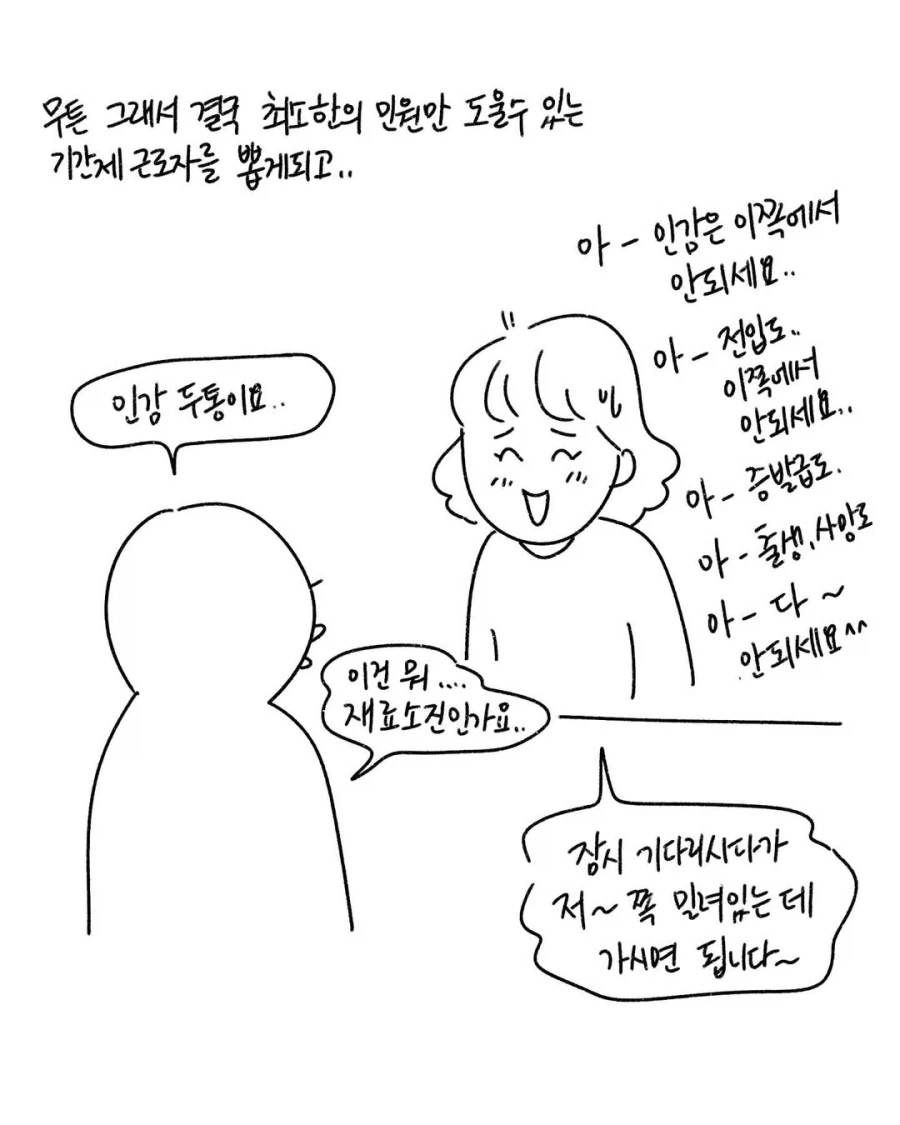 무튼 그래서 결국 최소한의 민원만 도울수 있는
기간제 근로자를 뽑게되고..
인감 두통이요..
아 - 인감은 이쪽에서
안되세요..
아 - 전입도..
이쪽에서
안되세요..
아 - 증발급도.
아 - 출생, 사망도
아 - 다 ~
안되세요^^
이건 뭐 ....
재료소진인가요..
잠시 기다리시다가
저~ 쪽 밀려있는 데
가시면 됩니다~